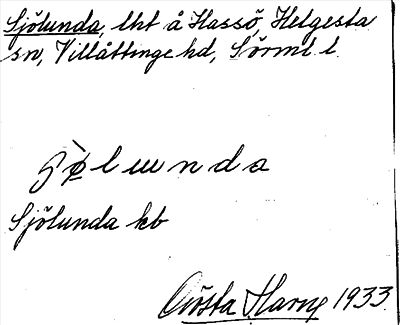 Sjölunda, lht å Hassö, Helgesta
sn, Villåttinge hd, Sörml l.
Sjölunda kb
Gösta Harne 1933